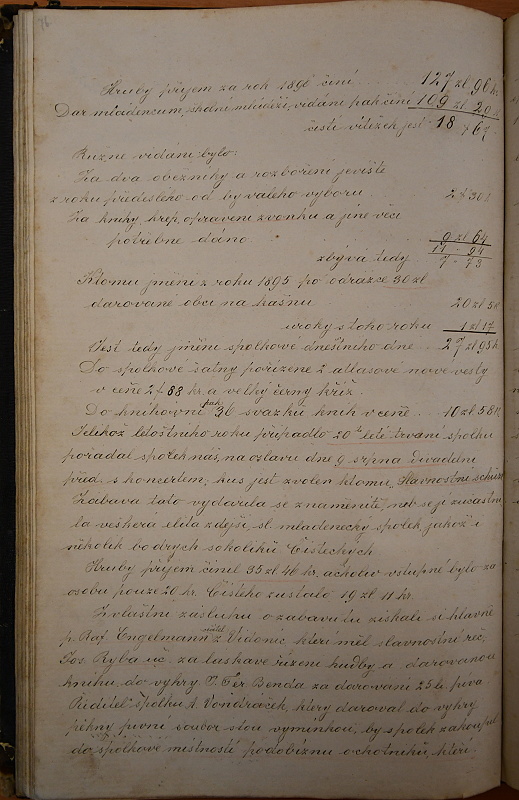 76
Hrubý příjem za rok 1896 činí . . . 127 zl 96 k.
Dar mládencům, školní mládeži, vydání pak činí 109 zl 29 k
čistý výtěžek jest 18 „ 67.
Různé vydání bylo:
Za dva oběžníky a rozboření jeviště
z roku předešlého od bývalého výboru . . . 2 z 30 k
Za knihy, opravení zvonku a jiné věci
potřebné dáno . . . 9 zl 64
11 - 94
zbývá tedy 7 - 73
K tomu jmění z roku 1895 po odrážce 30 zl
darované obci na hašňu . . . 20 zl 5 k
úroky z toho roku 1 zl 17
Jest tedy jmění spolkové dnešního dne . . 27 zl 95 k
Do spolkové šatny pořízené 2 atlasové nové vesty
v ceně 2 z 88 kr. a velký černý kříž.
Do knihovny pak 36 svazků knih v ceně . . 10 zl 58 k
Jelikož letošního roku připadlo 20ti leté trvání spolku
pořádal spolek náš na oslavu dne 9 srpna Divadelní
před. s koncertem, kus jest zvolen k tomu „Slavnostní schůze
Zábava tato vydařila se znamenitě, neb se jí zúčastni
la veškerá elita zdejší, sl. mládenecký spolek, jakož i
několik bodrých sokolíků Čisteckých
Hrubý příjem činil 35 zl. 46 kr. ačkoliv vstupné bylo za
osobu pouze 20 kr. Čistého zůstalo 19 zl 11 kr.
Zvláštní zásluhu o zábavu tu získali si hlavně
p. Raf. Engelmann učitel z Vidonic, který měl slavnostní řeč,
Jos. Ryba uč. za laskavé řízení hudby a darovanou
knihu do výhry P. Fer. Benda za darování 25 l. piva
Ředitel spolku A. Vondráček, který daroval do výhry
pěkný pivní soubor s tou výminkou, by spolek zakoupil
do spolkové místnosti podobiznu ochotníků, kteří